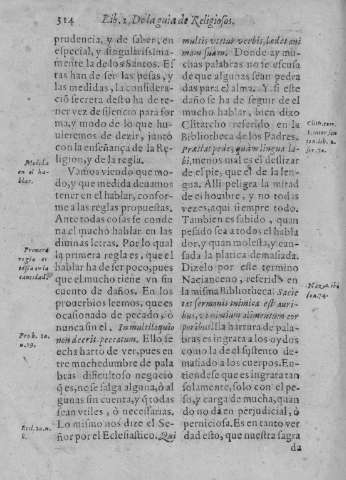 314 Lib. 2. De la guia de Religiosos.
prudencia, y de saber, en
especial, y singularissima-
mente la de los Santos. Es-
tas han de ser las pesas, y
las medidas, la considera-
ció secreta desto ha de te-
ner vez de silencio para for
ma, y modo de lo que hu-
uieremos de dezir, juntó
con la enseñança de la Re-
ligion, y de la regla.
Vamos viendo que mo-
do, y que medida deuamos
tener en el hablar, confor-
me a las reglas propuestas.
Ante todas cosas se conde
na el mucho hablar en las
diuinas letras. Por lo qual
la primera regla es, que el
hablar ha de ser poco, pues
que el mucho tiene vn sin
cuento de daños. En los
prouerbios leemos, que es
ocasionado de pecado, ò
nunca sin el. In multiloquio
non deerit peccatum. Ello se
echa harto de ver, pues en
tre muchedumbre de pala
bras dificultoso negocio
q̃ es, no se salga alguna, ò al
gunas sin cuenta, y q̃ todas
sean vtiles, ò necessarias.
Lo mismo nos dize el Se-
ñor por el Eclesiastico. Qui
Medida
en el ha
blar.
Primera
regla
Prob. 10.
n. 19.
Ecl. 20. n.
8.
multis vtitur verbis, lædet ani
mam suam. Donde ay mu-
chas palabras no se escusa
de que algunas sean pedra
das para el alma. Y si este
daño se ha de seguir de el
mucho hablar, bien dixo
Clitarcho referido en la
Bibliotheca de los Padres.
Præstat pede, quàm lingua la-
bi, menos mal es el deslizar
de el pie, que el de la len-
gua. Alli peligra la mitad
de el hombre, y no todas
vezes, aqui siempre todo.
Tambien es sabido, quan
pesado sea a todos el habla
dor, y quan molesta, y can-
sada la platica demasiada.
Dizelo por este termino
Nacianceno, referido en
la misma Bibliotheca: Sacie
tas sermonis inimica est auri-
bus, vt nimium alimentum cor
poribus. La hartura de pala-
bras es ingrata a los oydos
como la de el sustento de-
masiado a los cuerpos. En-
tiendese que es ingrata tan
solamente, solo con el pe-
so, y carga de mucha, quan
do no dà en perjudicial, ò
perniciosa. Es en tanto ver
dad esto, que nuestra sagra
da